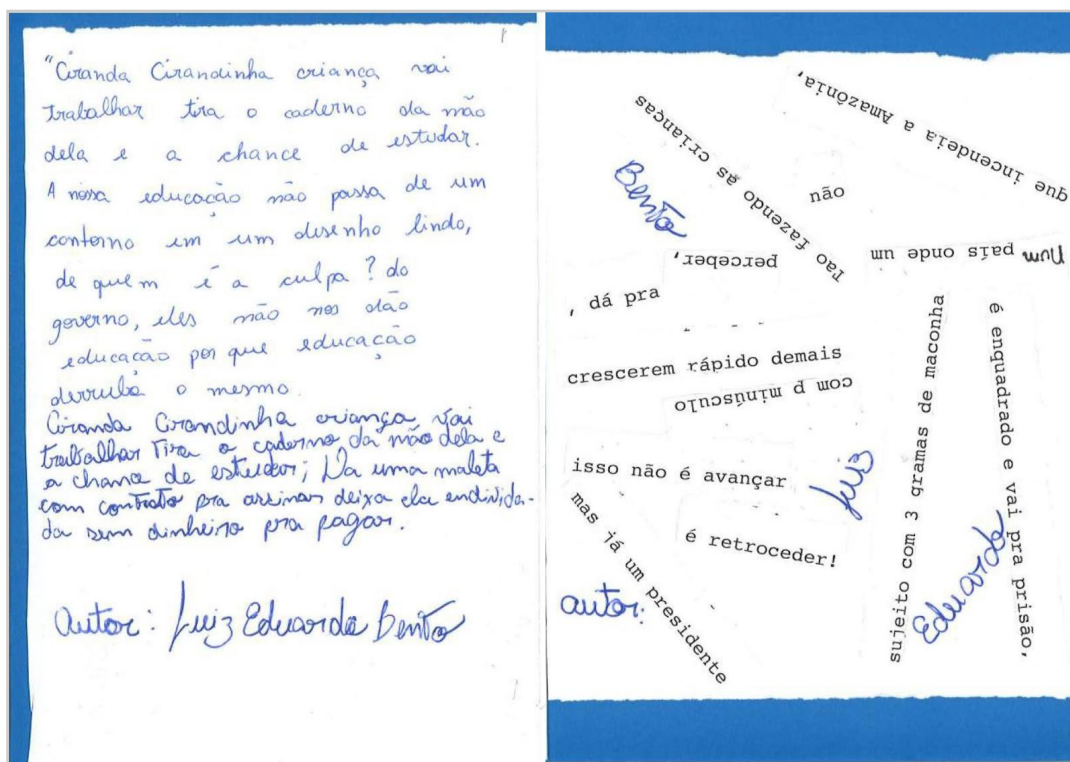 "Ciranda Cirandinha criança vai
trabalhar tira o caderno da mão
dela e a chance de estudar.
A nossa educação não passa de um
contorno em um desenho lindo,
de quem é a culpa? do
governo, eles não nos dão
educação por que educação
derruba o mesmo.
Ciranda Cirandinha criança vai
trabalhar Tira o caderno da mão dela e
a chance de estudar; Da uma maleta
com contrato pra assinar deixa ela endivida-
da sem dinheiro pra pagar.
autor: Luiz Eduardo Bento
que incendeia a Amazônia,
Tao fazendo as crianças
Bento
não
Num país onde um
perceber,
, dá pra
crescerem rápido demais
com p minúsculo
isso não é avançar
Luiz
é retroceder!
mas já um presidente
autor:
sujeito com 3 gramas de maconha
Eduardo
é enquadrado e vai pra prisão,